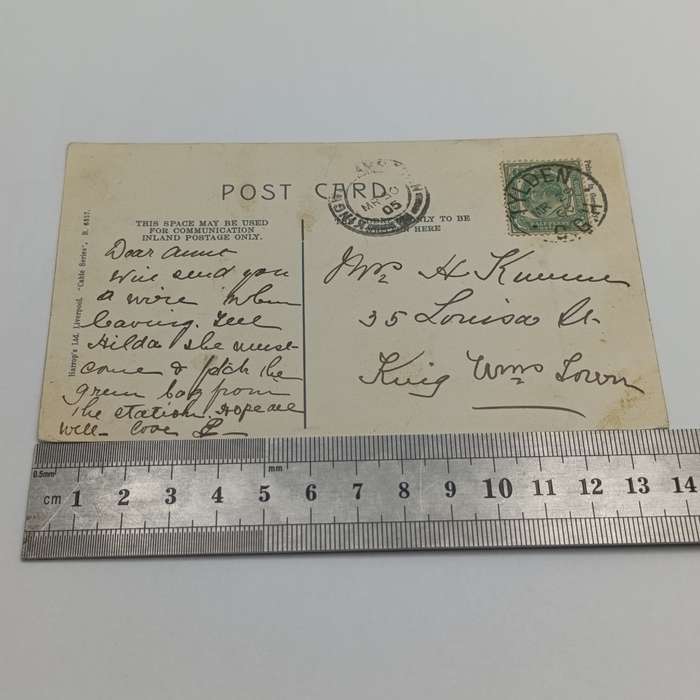 POST CARD
THIS SPACE MAY BE USED
FOR COMMUNICATION
INLAND POSTAGE ONLY.
ONLY TO BE
HERE
Harrop's Ltd. Liverpool. "Cable Series", D. 6357.
Dear Anne
Will send you
a wire when
leaving. Tell
Hilda she must
come & fetch the
green bag from
the station. Hope all
well. Love
Mrs H
35 Louisa St
King Wms Town
05
0.5mm
mm
cm 1 2 3 4 5 6 7 8 9 10 11 12 13 14